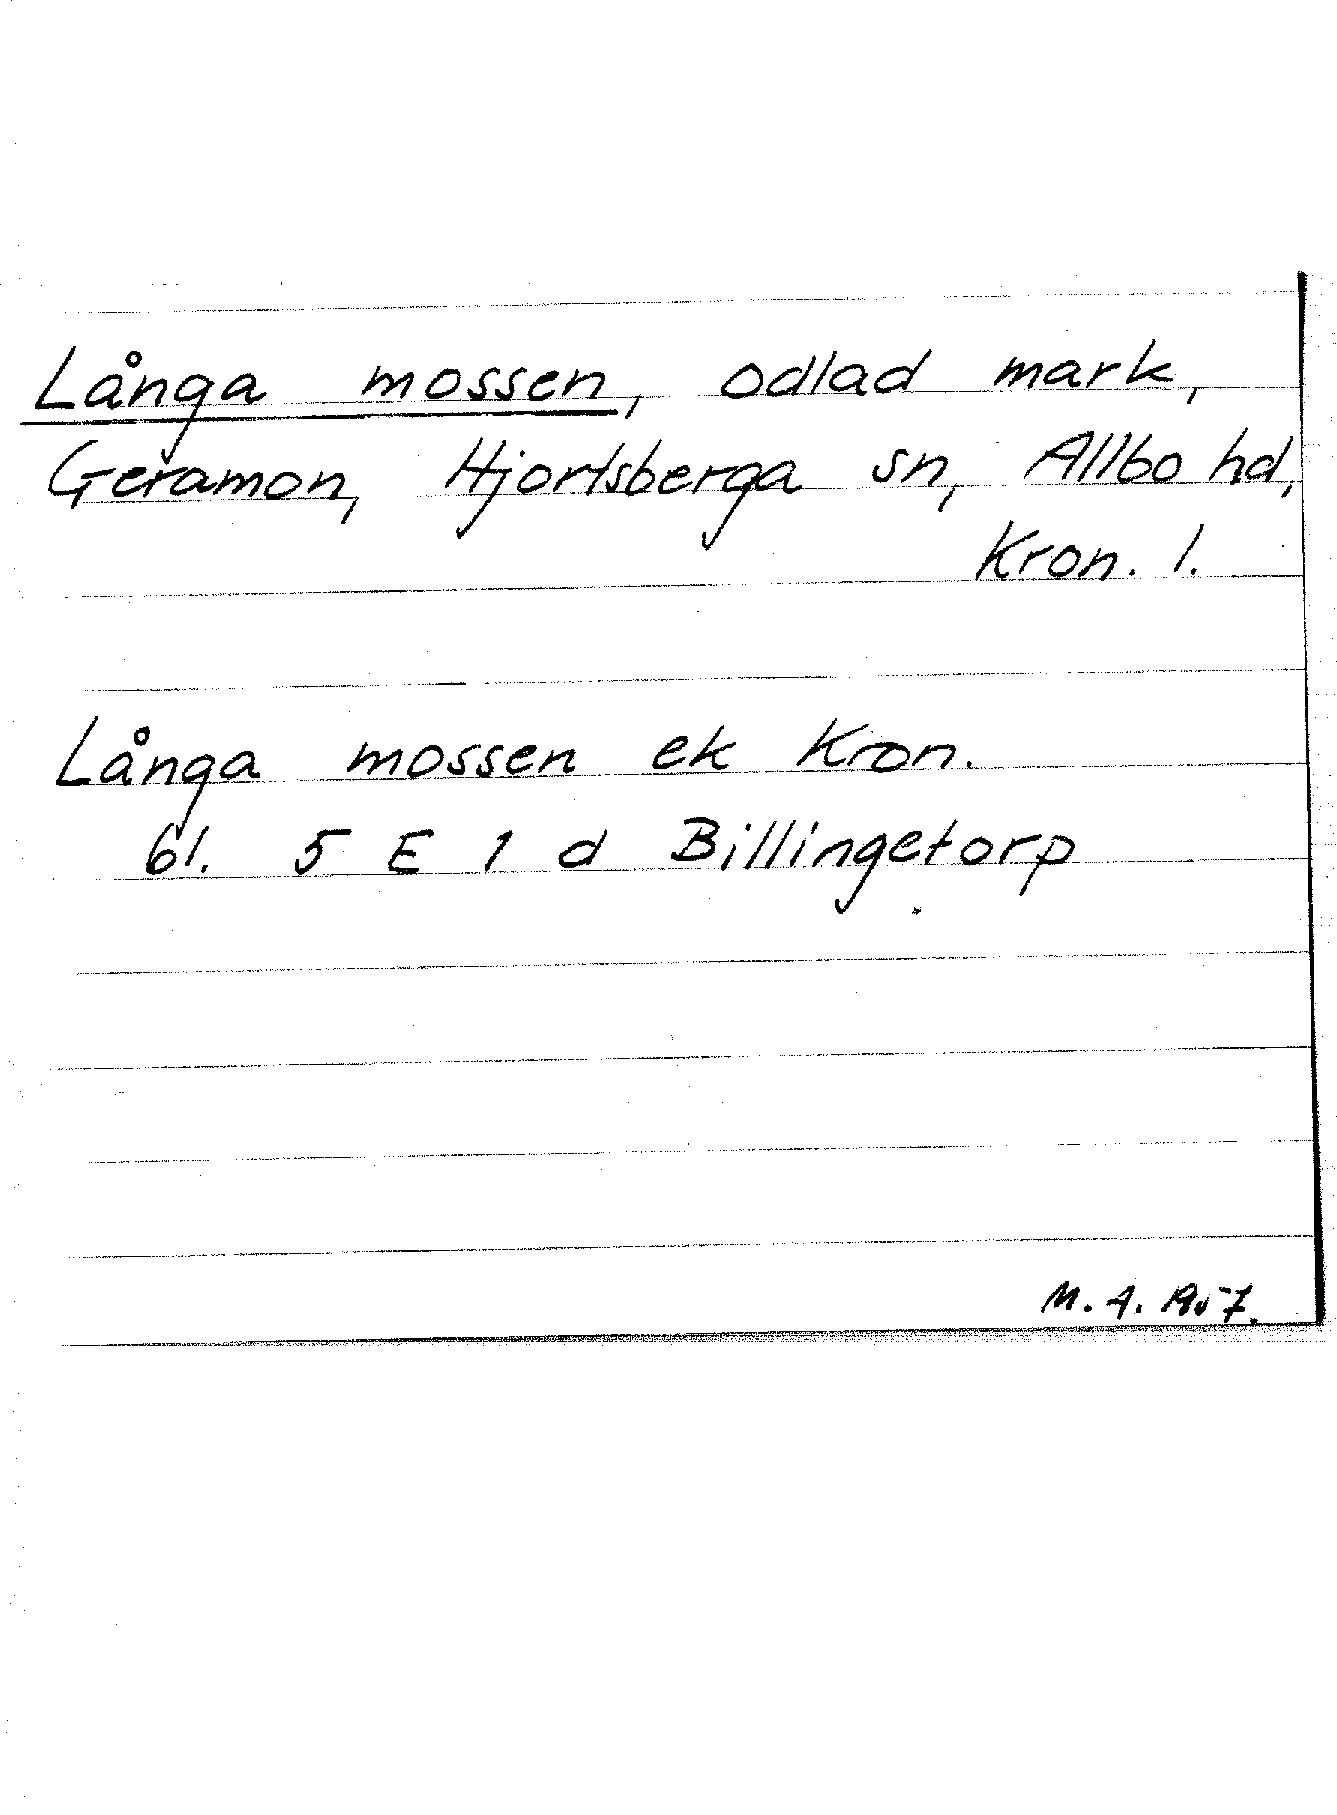 Långa mossen, odlad mark,
Geramon, Hjortsberga sn, Allbo hd,
Kron. l.
Långa mossen ek Kron.
bl. 5 E 1 d Billingetorp
M. A. 1957.